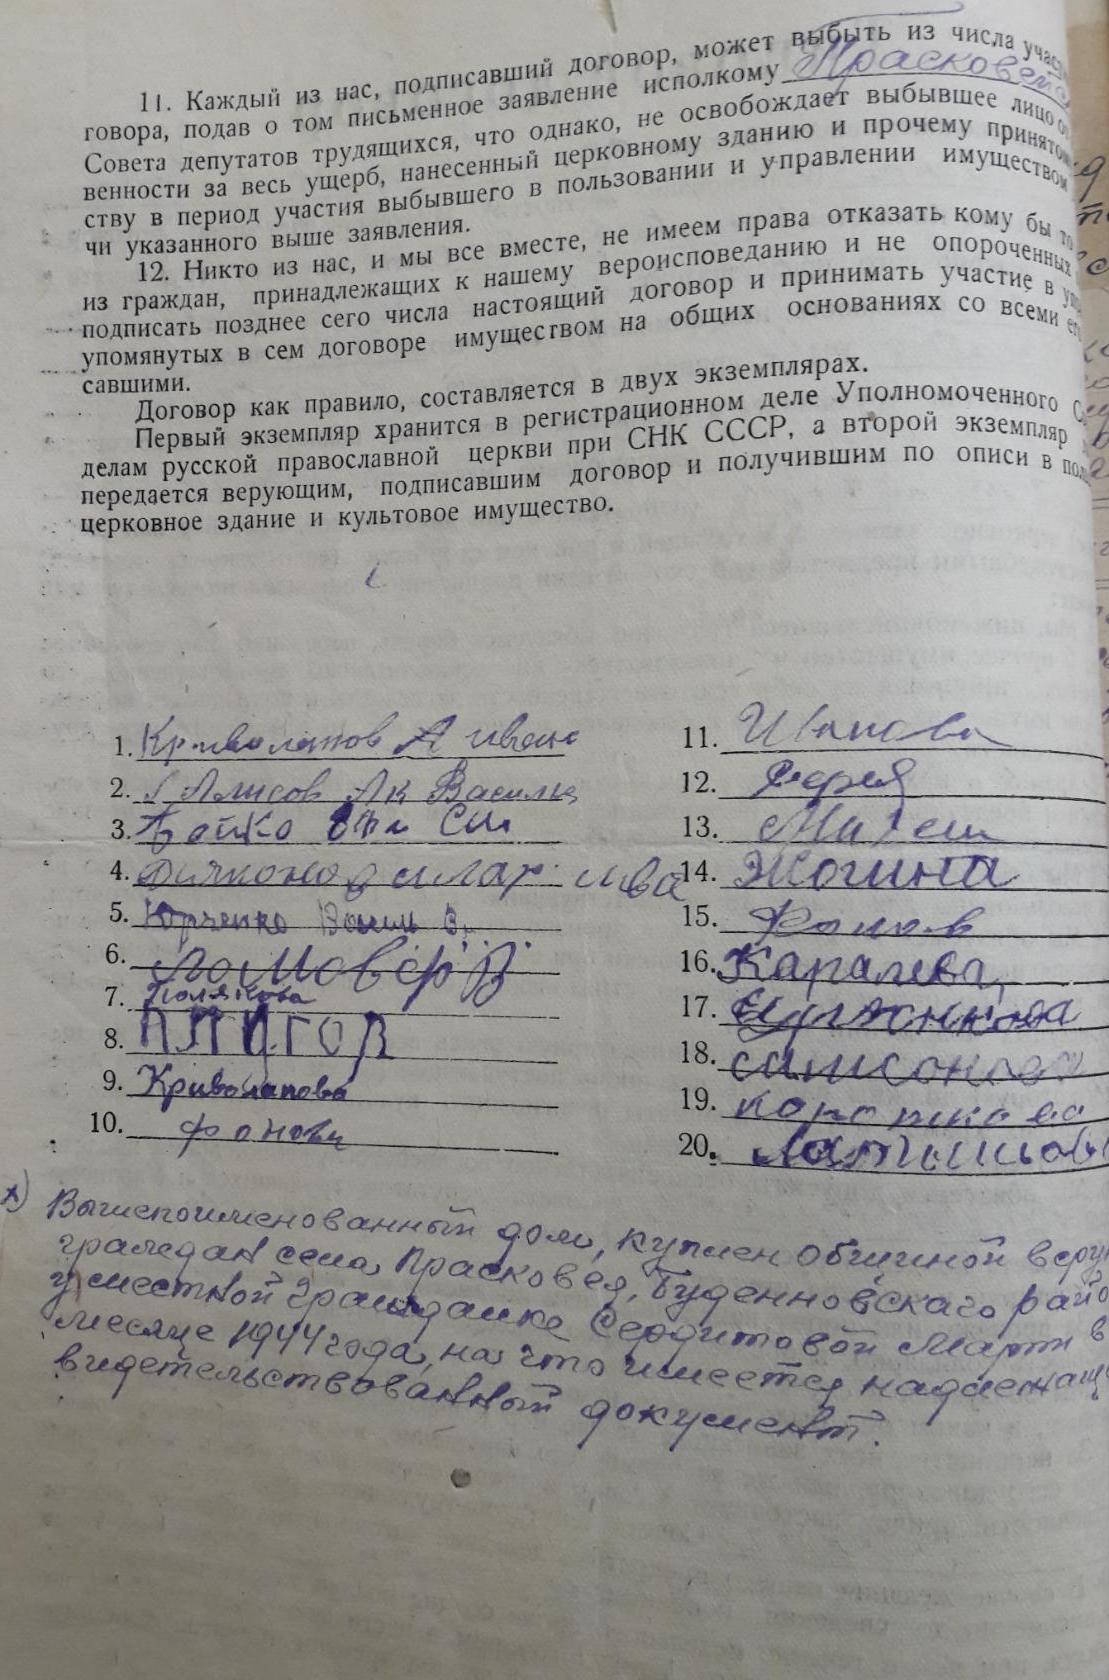 11. Каждый из нас, подписавший договор, может выбыть из числа учас
говора, подав о том письменное заявление исполкому Прасковейс
Совета депутатов трудящихся, что однако, не освобождает выбывшее лицо от
венности за весь ущерб, нанесенный церковному зданию и прочему принятом
ству в период участия выбывшего в пользовании и управлении имуществом
чи указанного выше заявления.
12. Никто из нас, и мы все вместе, не имеем права отказать кому бы то
из граждан, принадлежащих к нашему вероисповеданию и не опороченных
подписать позднее сего числа настоящий договор и принимать участие в уп
упомянутых в сем договоре имуществом на общих основаниях со всеми ег
савшими.
Договор как правило, составляется в двух экземплярах.
Первый экземпляр хранится в регистрационном деле Уполномоченного С
делам русской православной церкви при СНК СССР, а второй экземпляр
передается верующим, подписавшим договор и получившим по описи в пол
церковное здание и культовое имущество.
1. Криволапов А Иван
2. Алисов Ак Василь
3. Бойко Сим
4.
5. Юрченко Васил
6. Ломовер В
7. Полякова
8.
9. Криволапова
10.
11.
12.
13.
14. Жогина
15.
16. Каралева
17.
18. Симсонова
19. короткова
20. Латышова
х) Вышепоименованный дом, куплен общиной веру
граждан села Прасковея, Буденновскаго рай
у местной гражданке Сердитовой Марти в
месяце 1944 года, на что имеется надлежащ
видетельствованный документ.